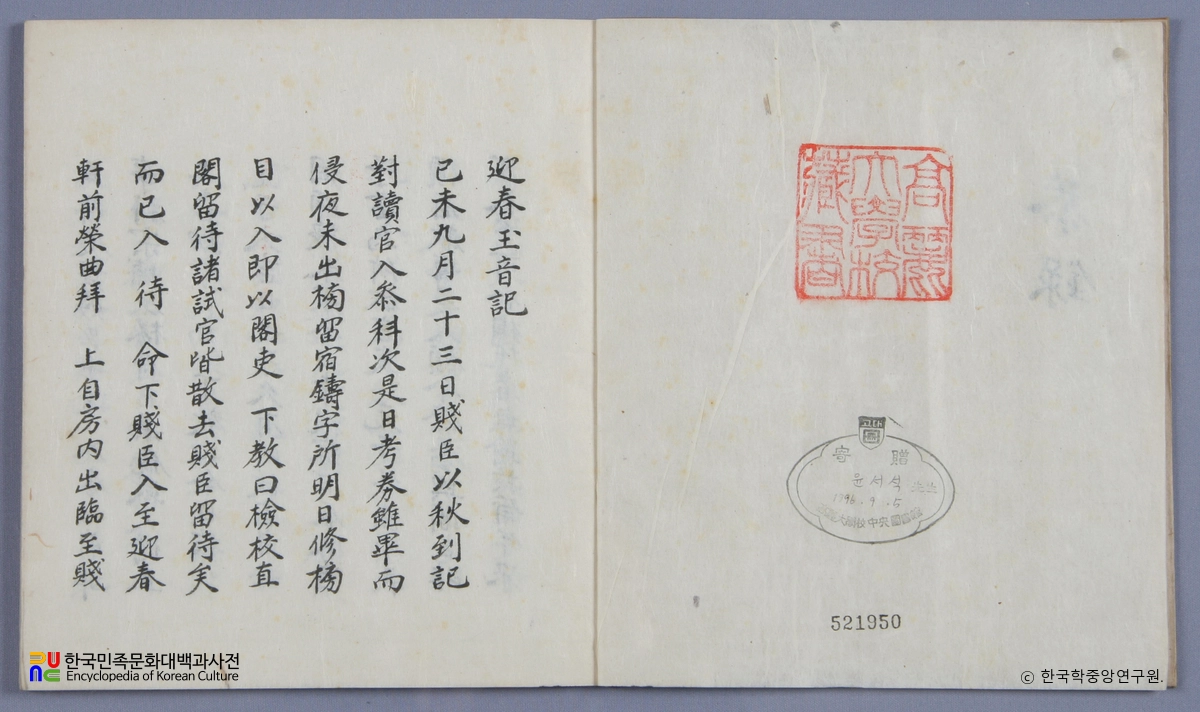 迎春玉音記
己未九月二十三日賤臣以秋到記
對讀官入叅科次是日考券雖畢而
侵夜未出榜留宿鑄字所明日修榜
目以入即以閣吏 下教曰檢校直
閣留待諸試官皆散去賤臣留待矣
而已入 待 命下賤臣入至迎春
軒前榮曲拜 上自房内出臨至賤
高麗
大學校
藏書
고대
圖
寄贈
윤서석 先生
1996. 9. 5
大學校中央圖書館
521950
한국민족문화대백과사전
Encyclopedia of Korean Culture
ⓒ 한국학중앙연구원.